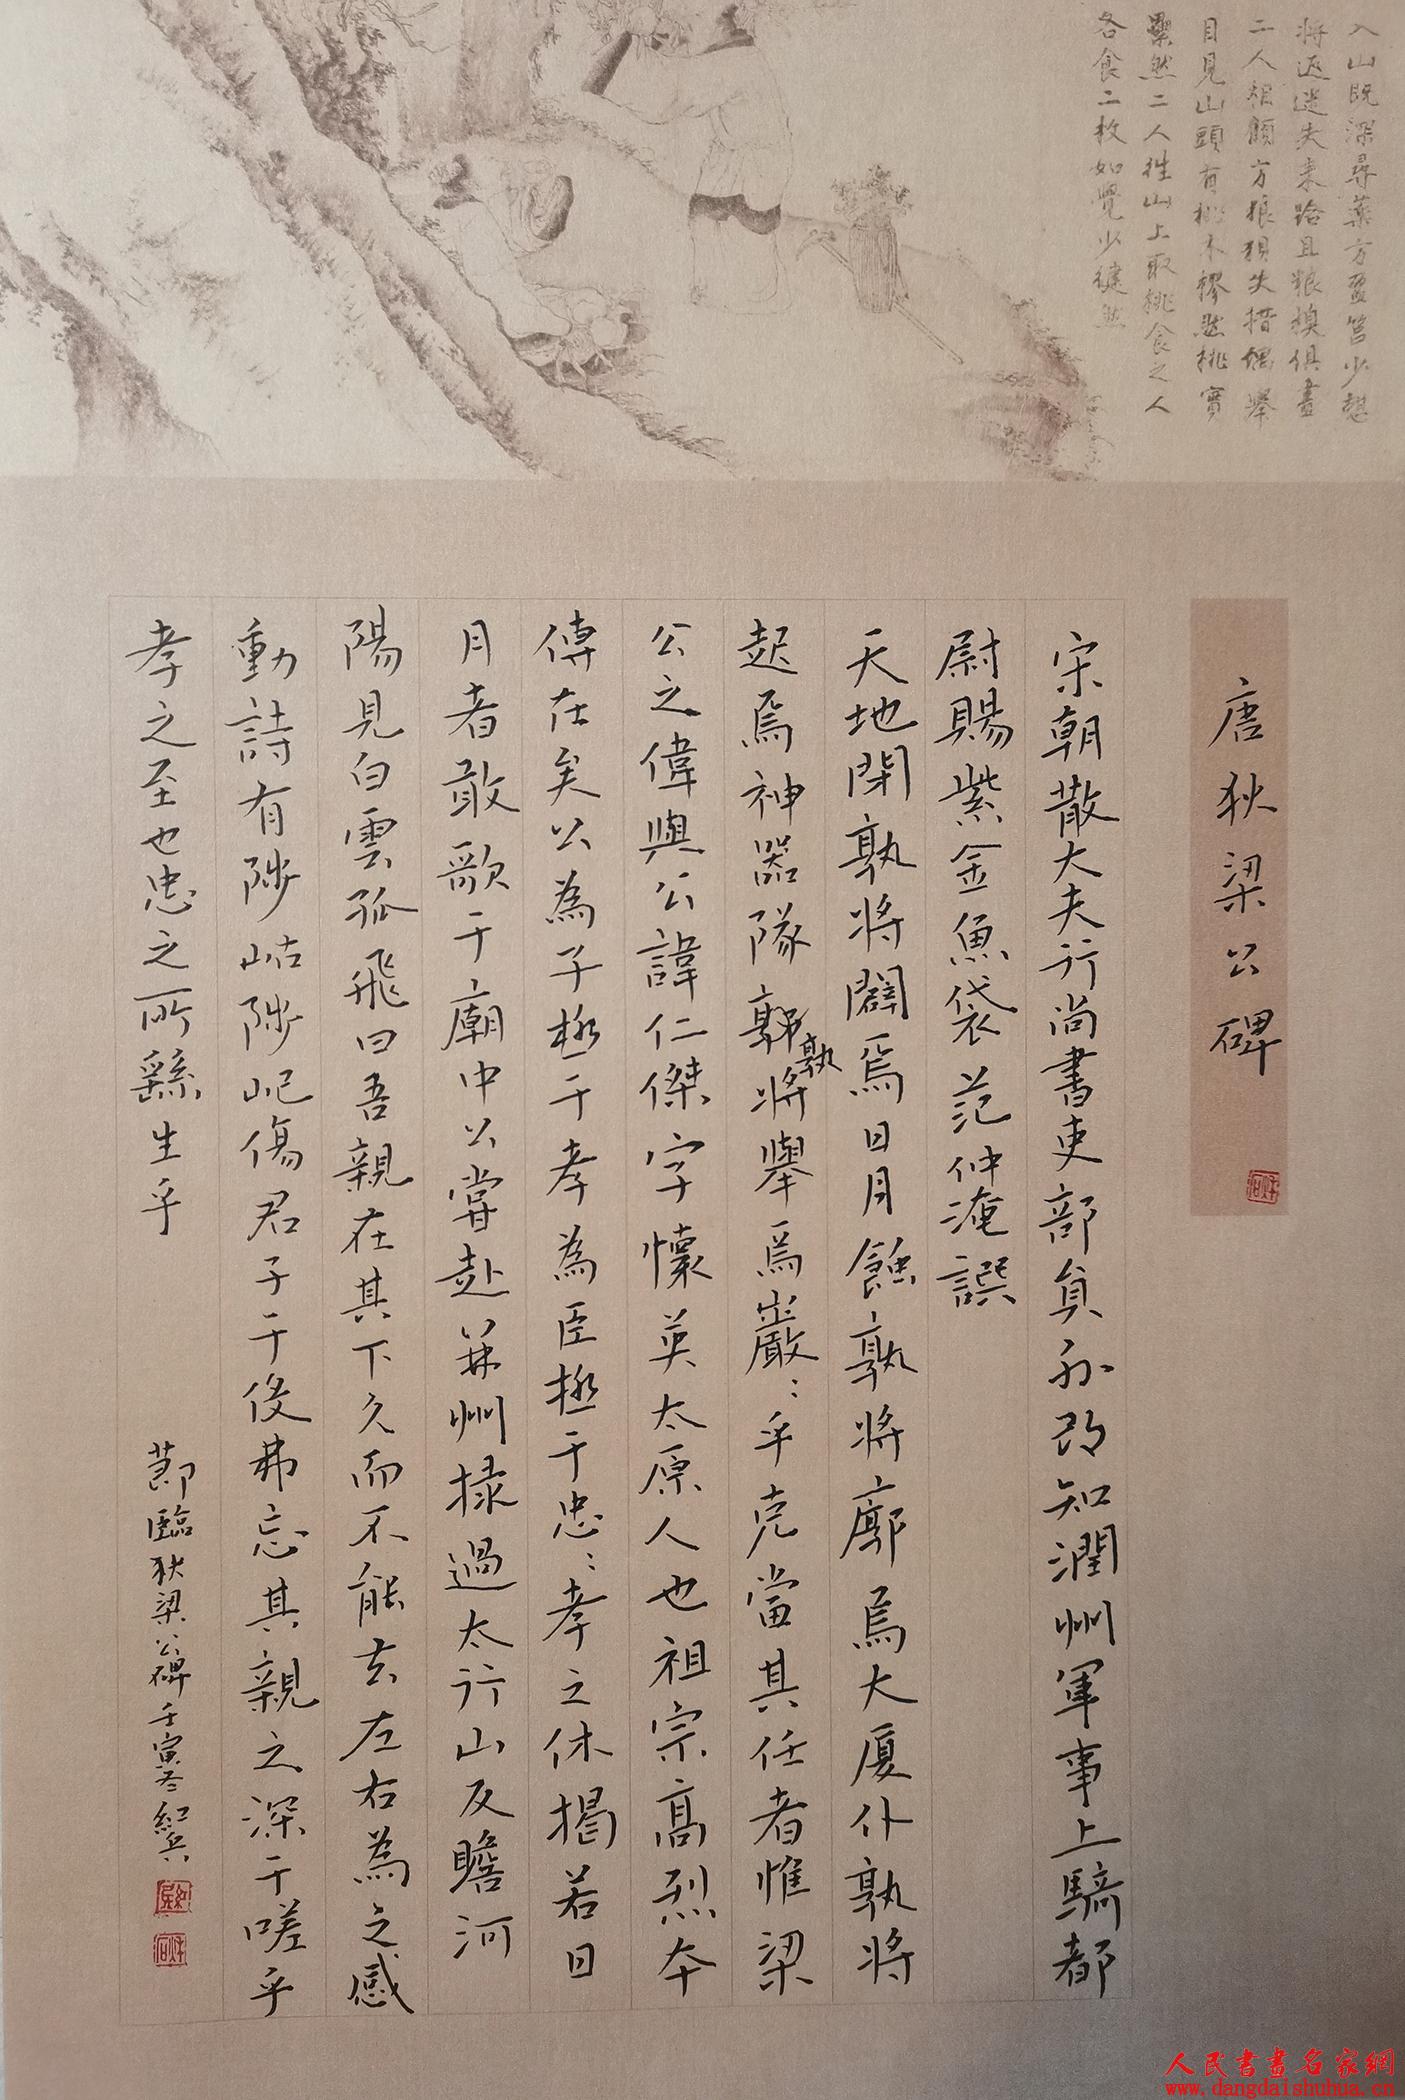 入山既深尋藥方盈筥少憩
將返迷失來路且糧糗俱盡
二人相顧方狼狽失措偶舉
目見山頭有桃木樛然桃實
纍然二人往山上取桃食之人
各食二枚如覺少健然
唐狄梁公碑
宋朝散大夫行尚書吏部員外郎知潤州軍事上騎都
尉賜紫金魚袋范仲淹譔
天地閉孰將闢焉日月蝕孰將廓焉大厦仆孰將
起焉神器隊孰將舉焉巖〻乎克當其任者惟梁
公之偉與公諱仁傑字懷英太原人也祖宗高烈夲
傳在矣公為子極于孝為臣極于忠〻孝之休揭若日
月者敢歌于廟中公嘗赴并州掾過太行山反瞻河
陽見白雲孤飛曰吾親在其下久而不能去左右為之感
動詩有陟岵陟屺傷君子于役弗忘其親之深于嗟乎
孝之至也忠之所繇生乎
莭臨狄梁公碑壬寅冬紅兵
人民書畫名家網
www.dangdaishuhua.cn